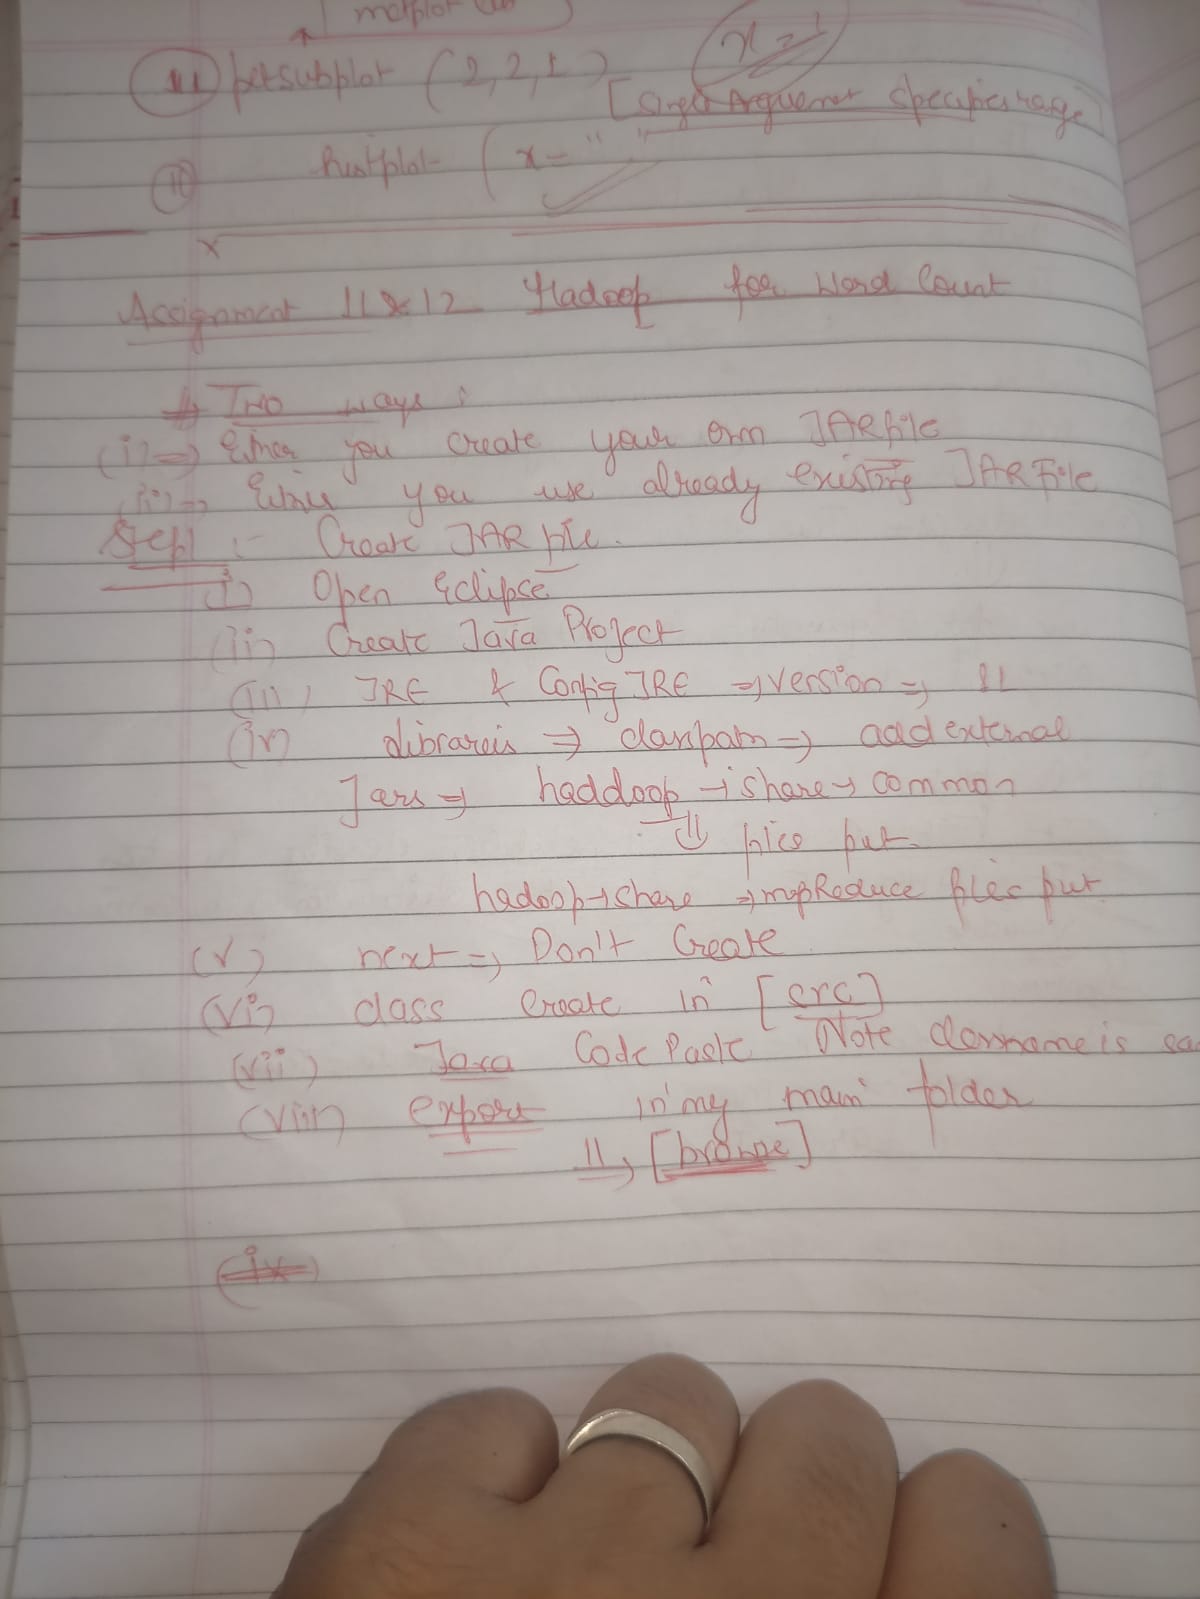 matplot
11 subplot (2,2,1) x = 1
[Single Arguemnt specifies rage]
histplot (x = " "
x
Assignment 11 & 12 Hadoop for Word Count
Two ways :
(i) => Either you create your own JAR file
(ii) => Either you use already existing JAR File
Step 1 :- Create JAR file.
i) Open Eclipse
(ii) Create Java Project
(iii) JRE & Config JRE => version => 11
(iv) librareis => classpath => add external
Jars => haddoop -> share -> common
files put
hadoop -> share => mapReduce files put
(v) next => Don't Create
(vi) class Create in [src]
(vii) Java Code Paste Note classname is
(viii) export in my main folder
[browse]
(ix)